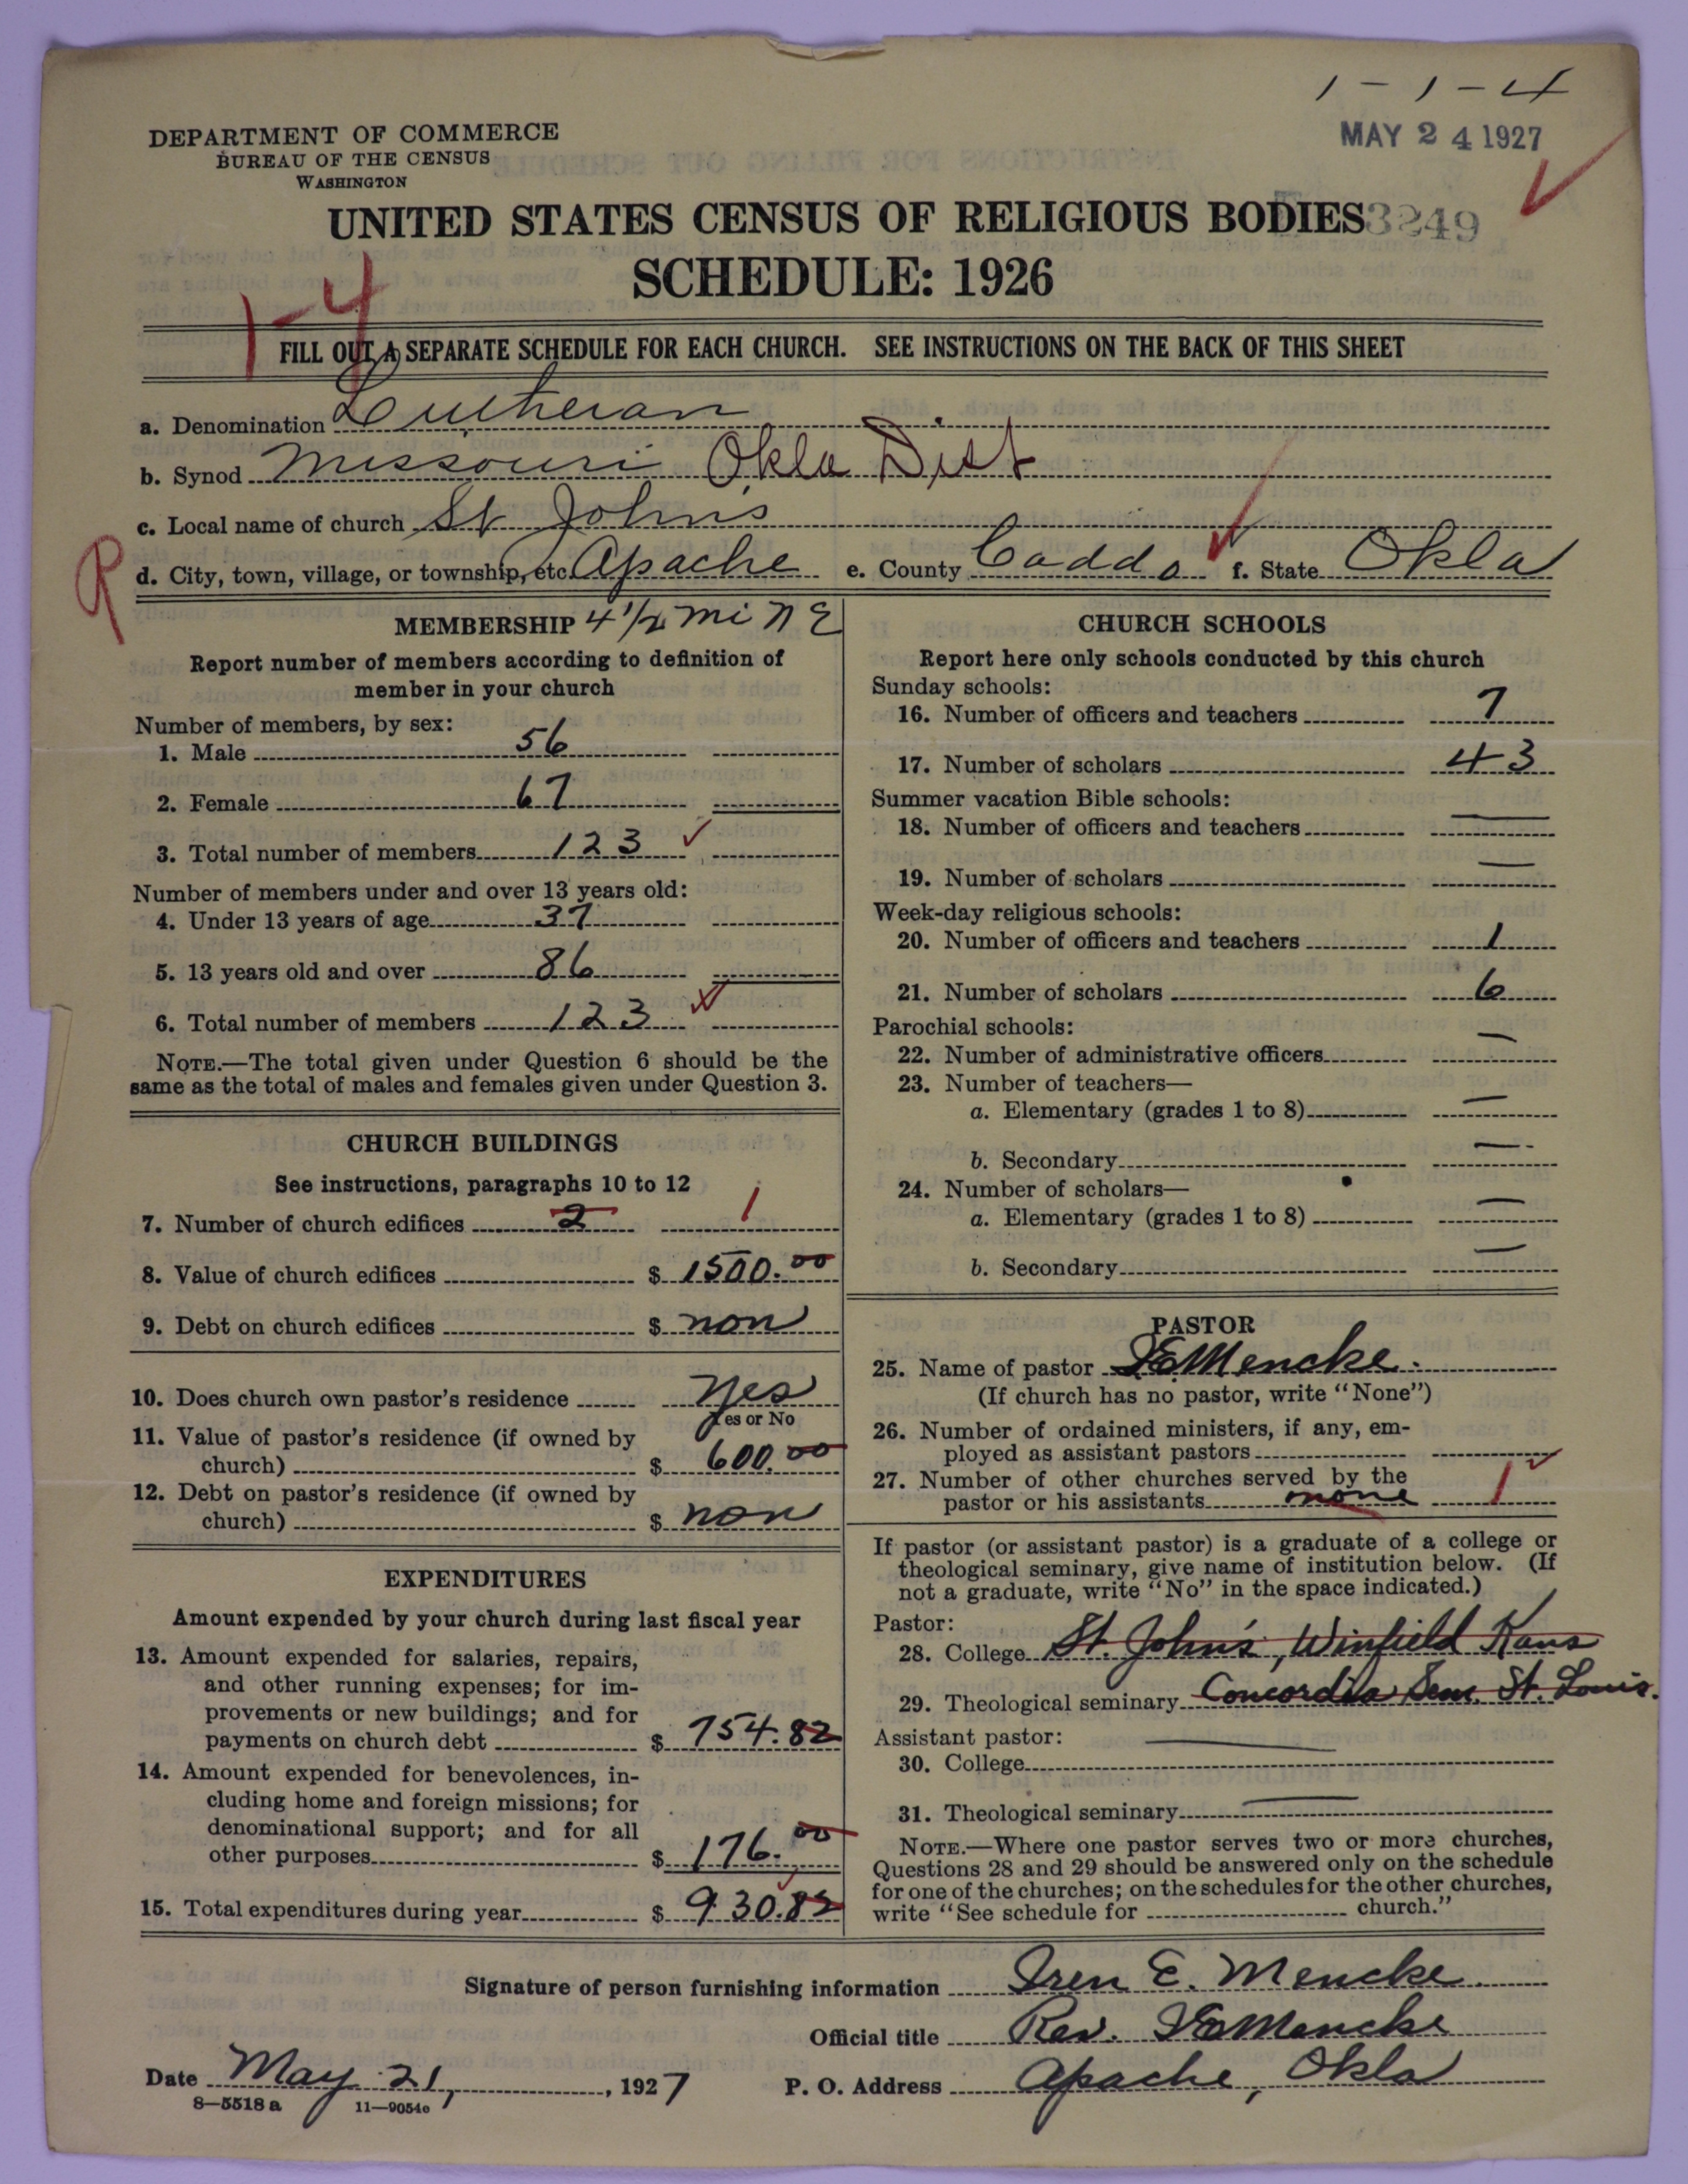 1-1-4
MAY 24 1927
DEPARTMENT OF COMMERCE
BUREAU OF THE CENSUS
WASHINGTON
UNITED STATES CENSUS OF RELIGIOUS BODIES 3249
SCHEDULE: 1926
1-4
FILL OUT A SEPARATE SCHEDULE FOR EACH CHURCH. SEE INSTRUCTIONS ON THE BACK OF THIS SHEET
a. Denomination Lutheran
b. Synod Missouri Okla Dist
c. Local name of church St Johns
R
d. City, town, village, or township, etc. Apache e. County Caddo f. State Okla
MEMBERSHIP 4 1/2 mi N E
Report number of members according to definition of
member in your church
Number of members, by sex:
1. Male 56
2. Female 67
3. Total number of members 123
Number of members under and over 13 years old:
4. Under 13 years of age 37
5. 13 years old and over 86
6. Total number of members 123
NOTE.—The total given under Question 6 should be the
same as the total of males and females given under Question 3.
CHURCH BUILDINGS
See instructions, paragraphs 10 to 12
7. Number of church edifices 2 1
8. Value of church edifices $ 1500.00
9. Debt on church edifices $ non
10. Does church own pastor's residence yes
Yes or No
11. Value of pastor's residence (if owned by
church) $ 600.00
12. Debt on pastor's residence (if owned by
church) $ non
EXPENDITURES
Amount expended by your church during last fiscal year
13. Amount expended for salaries, repairs,
and other running expenses; for im-
provements or new buildings; and for
payments on church debt $ 754.82
14. Amount expended for benevolences, in-
cluding home and foreign missions; for
denominational support; and for all
other purposes $ 176.00
15. Total expenditures during year $ 930.82
CHURCH SCHOOLS
Report here only schools conducted by this church
Sunday schools:
16. Number of officers and teachers 7
17. Number of scholars 43
Summer vacation Bible schools:
18. Number of officers and teachers —
19. Number of scholars —
Week-day religious schools:
20. Number of officers and teachers 1
21. Number of scholars 6
Parochial schools:
22. Number of administrative officers —
23. Number of teachers—
a. Elementary (grades 1 to 8) —
b. Secondary —
24. Number of scholars—
a. Elementary (grades 1 to 8) —
b. Secondary —
PASTOR
25. Name of pastor I E Mencke.
(If church has no pastor, write "None")
26. Number of ordained ministers, if any, em-
ployed as assistant pastors
27. Number of other churches served by the
pastor or his assistants none 1
If pastor (or assistant pastor) is a graduate of a college or
theological seminary, give name of institution below. (If
not a graduate, write "No" in the space indicated.)
Pastor:
28. College St. John's, Winfield Kans
29. Theological seminary Concordia Sem. St. Louis.
Assistant pastor:
30. College
31. Theological seminary
NOTE.—Where one pastor serves two or more churches,
Questions 28 and 29 should be answered only on the schedule
for one of the churches; on the schedules for the other churches,
write "See schedule for church."
Signature of person furnishing information Iren E. Mencke
Official title Rev. I E Mencke
Date May 21, 1927 P. O. Address Apache, Okla
8—5518 a 11—9054e